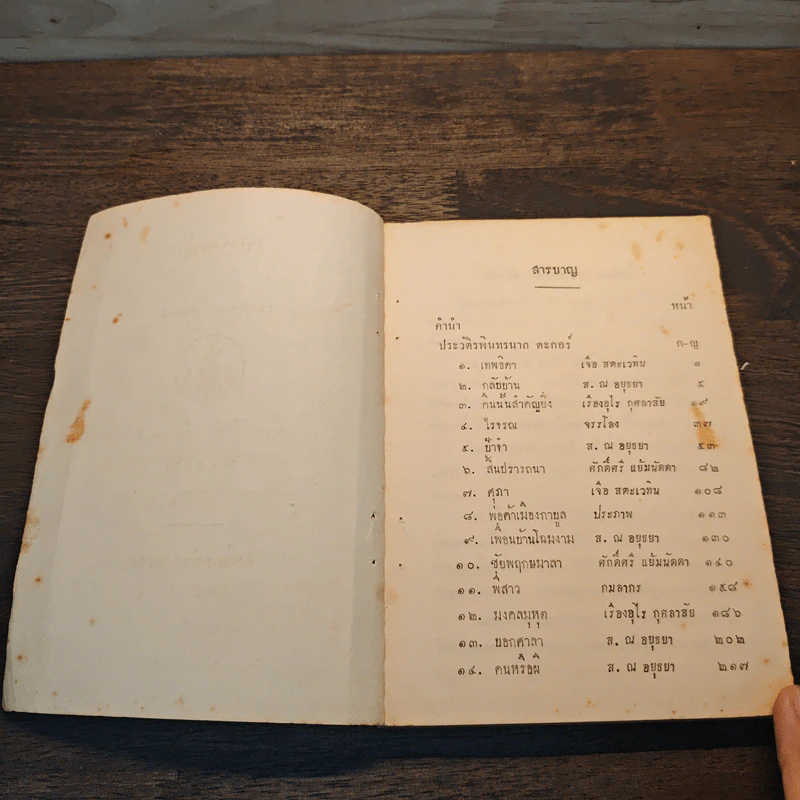 สารบาญ
หน้า
คำนำ
ประวัติรพินทรนาถ ตะกอร์ ก-ญ
๑. เทพธิดา เจือ สตะเวทิน ๑
๒. กลับบ้าน ส. ณ อยุธยา ๕
๓. คืนนั้นสำคัญยิ่ง เรืองอุไร กุศลาสัย ๑๙
๔. ไรจรณ จรรโลง ๓๗
๕. ย้าจ๋า ส. ณ อยุธยา ๕๓
๖. สิ้นปรารถนา ศักดิ์ศรี แย้มนัดดา ๘๒
๗. ศุภา เจือ สตะเวทิน ๑๐๘
๘. พ่อค้าเมืองกาบูล ประภาพ ๑๑๓
๙. เพื่อนบ้านโฉมงาม ส. ณ อยุธยา ๑๓๐
๑๐. ชัยพฤกษมาลา ศักดิ์ศรี แย้มนัดดา ๑๔๐
๑๑. พี่สาว กมลากร ๑๕๘
๑๒. มงคลมุหุต เรืองอุไร กุศลาสัย ๑๘๖
๑๓. ยอกศาลา ส. ณ อยุธยา ๒๐๒
๑๔. คนหรือผี ส. ณ อยุธยา ๒๑๗